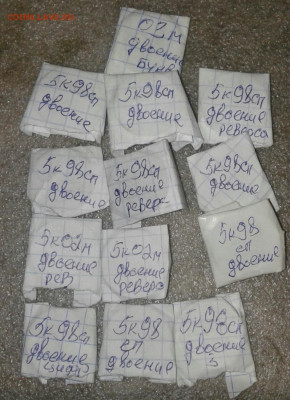 02м
двоение
Букв
5к98сп
двоение
5к98сп
двоение
5к98сп
двоение
реверса
5к98сп
двоение
5к98сп
двоение
реверс
5к98сп
двоение
5к02м
двоение
рев
5к02м
двоение
реверс
5к98
сп
двоение
5к98сп
двоение
5к98
сп
двоение
5к98сп
двоение
5